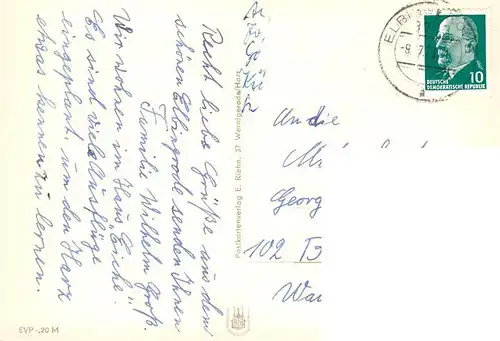 Recht liebe Grüße aus dem
schönen Elbingrode senden Ihnen
Familie Wilhelm Groß.
Wir wohnen im Haus "Eiche".
Es sind viele Ausflüge
eingeplant, um den Harz
etwas kennen zu lernen.
EVP -,20 M
Postkartenverlag E. Riehn, 37 Wernigerode/Harz
ELBING
-9.7.
DEUTSCHE
DEMOKRATISCHE REPUBLIK
10
An die
Georg
102